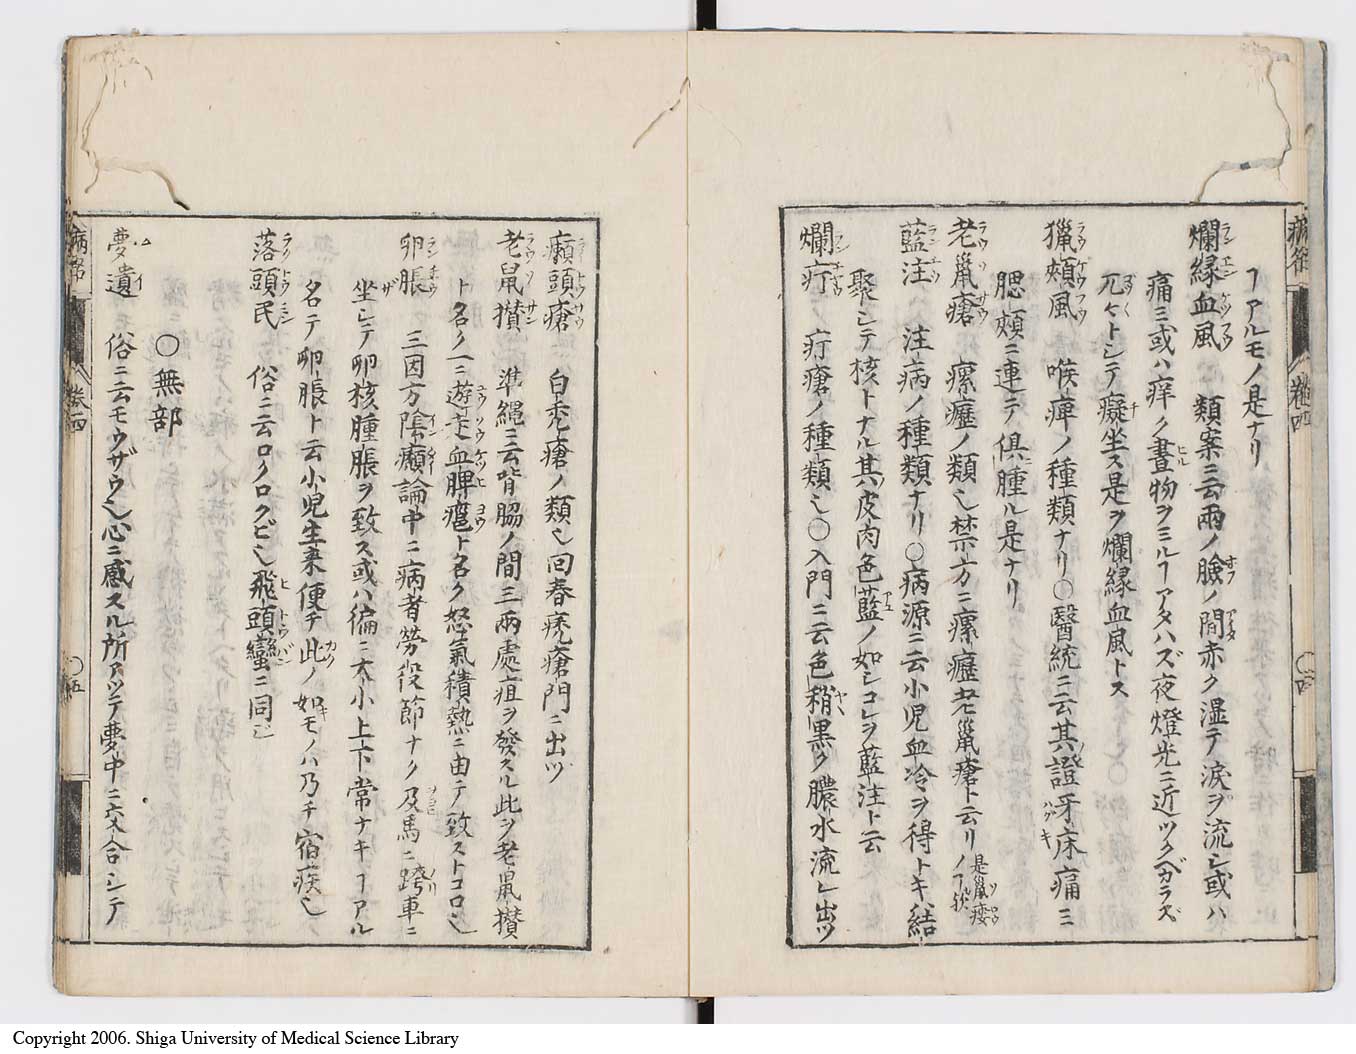 ヿアルモノ是ナリ
爛縁血風 類案ニ云兩ノ臉ノ間赤ク湿テ淚ヲ流シ或ハ
痛ミ或ハ痒ク晝物ヲミルヿアタハズ夜燈光ニ近ツクベカラズ
兀々トシテ癡坐ス是ヲ爛縁血風トス
獵頰風 喉痺ノ種類ナリ○醫統ニ云其證牙床痛ミ
腮頰ニ連テ俱ニ腫ル是ナリ
老鼠瘡 瘰癧ノ類也禁方ニ瘰癧老鼠瘡ト云リ是鼠瘻ノヿ欤
藍注 注病ノ種類ナリ○病源ニ云小児血冷ヲ得トキハ結
聚シテ核トナル其皮肉色藍ノ如シコレヲ藍注ト云
爛疔 疔瘡ノ種類也○入門ニ云色稍黒ク膿水流レ出ツ
病名 卷四 ○四
癩頭瘡 白禿瘡ノ類也回春禿瘡門ニ出ツ
老鼠攢 準縄ニ云背脇ノ間三兩處疽ヲ發スル此ヲ老鼠攢
ト名ク一ニ遊走血脾癰ト名ク怒氣積熱ニ由テ致ストコロ也
卵脹 三因方陰㿗論中ニ病者勞役節ナク及馬ニ跨車ニ
坐シテ卵核腫脹ヲ致ス或ハ徧ニ大小上下常ナキヿアル
名テ卵脹ト云小児生来便チ此ノ如キモノハ乃チ宿疾也
落頭民 俗ニ云ロクロクビ也飛頭蠻ニ同シ
○無部
夢遺 俗ニ云モウザウ也心ニ感スル所アツテ夢中ニ交合シテ
病名 卷四 ○五
Copyright 2006. Shiga University of Medical Science Library